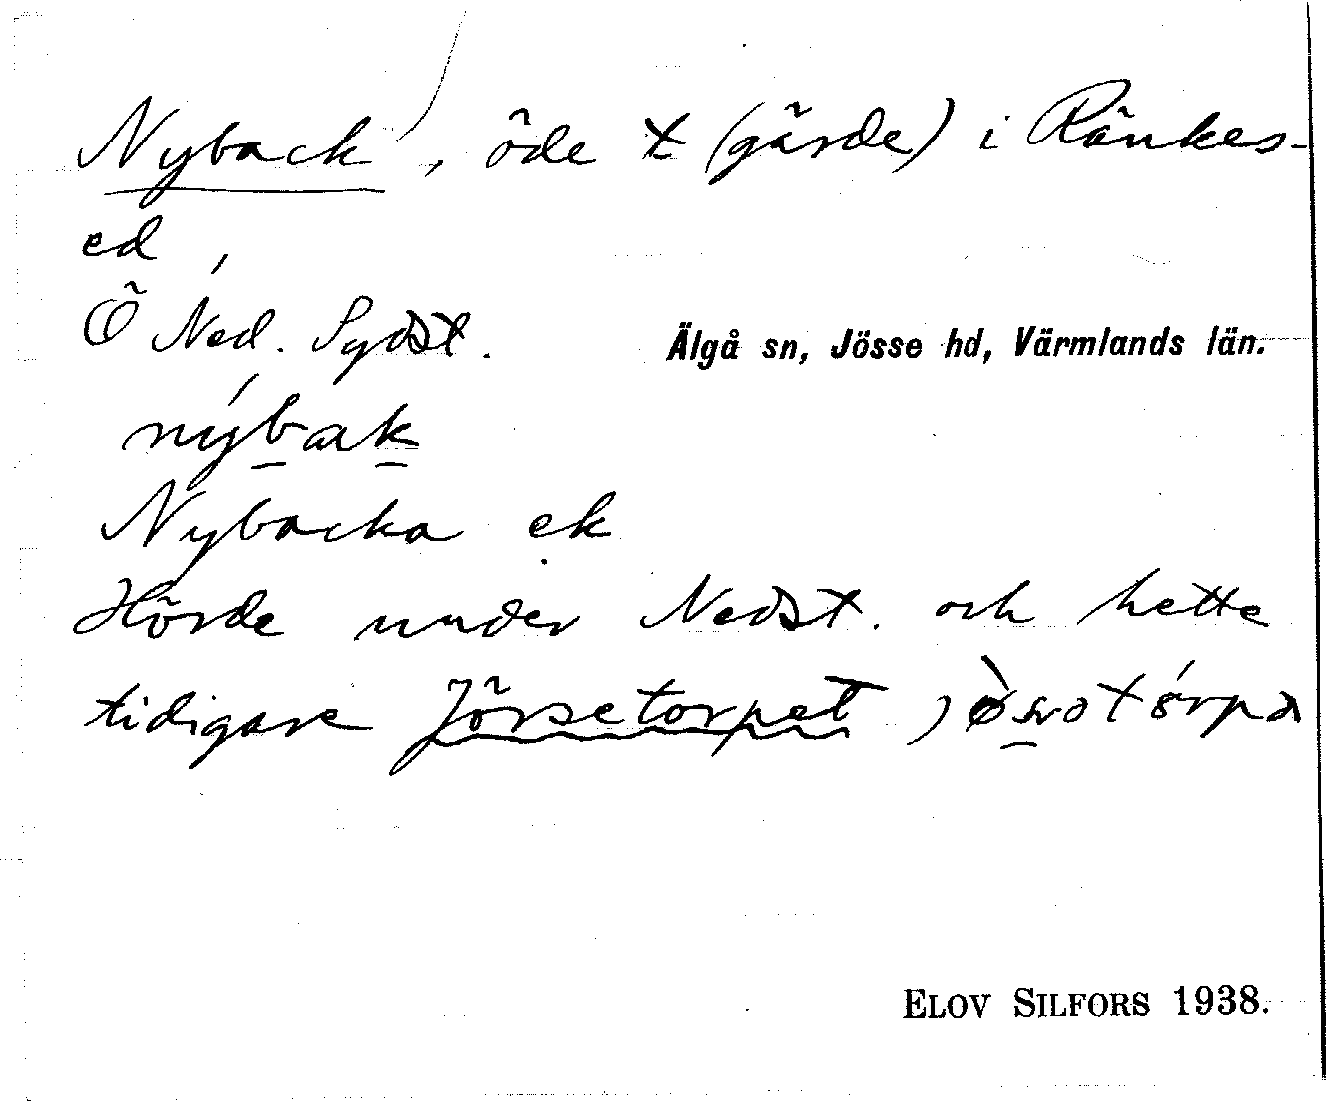 Nyback, öde t (gärde) i Ränkes-
ed,
Ö Ned. Sydst.
Älgå sn, Jösse hd, Värmlands län.
nýbak
Nybacka ek
Hörde under Nedst. och hette
tidigare Jörsetorpet,
ELOV SILFORS 1938.